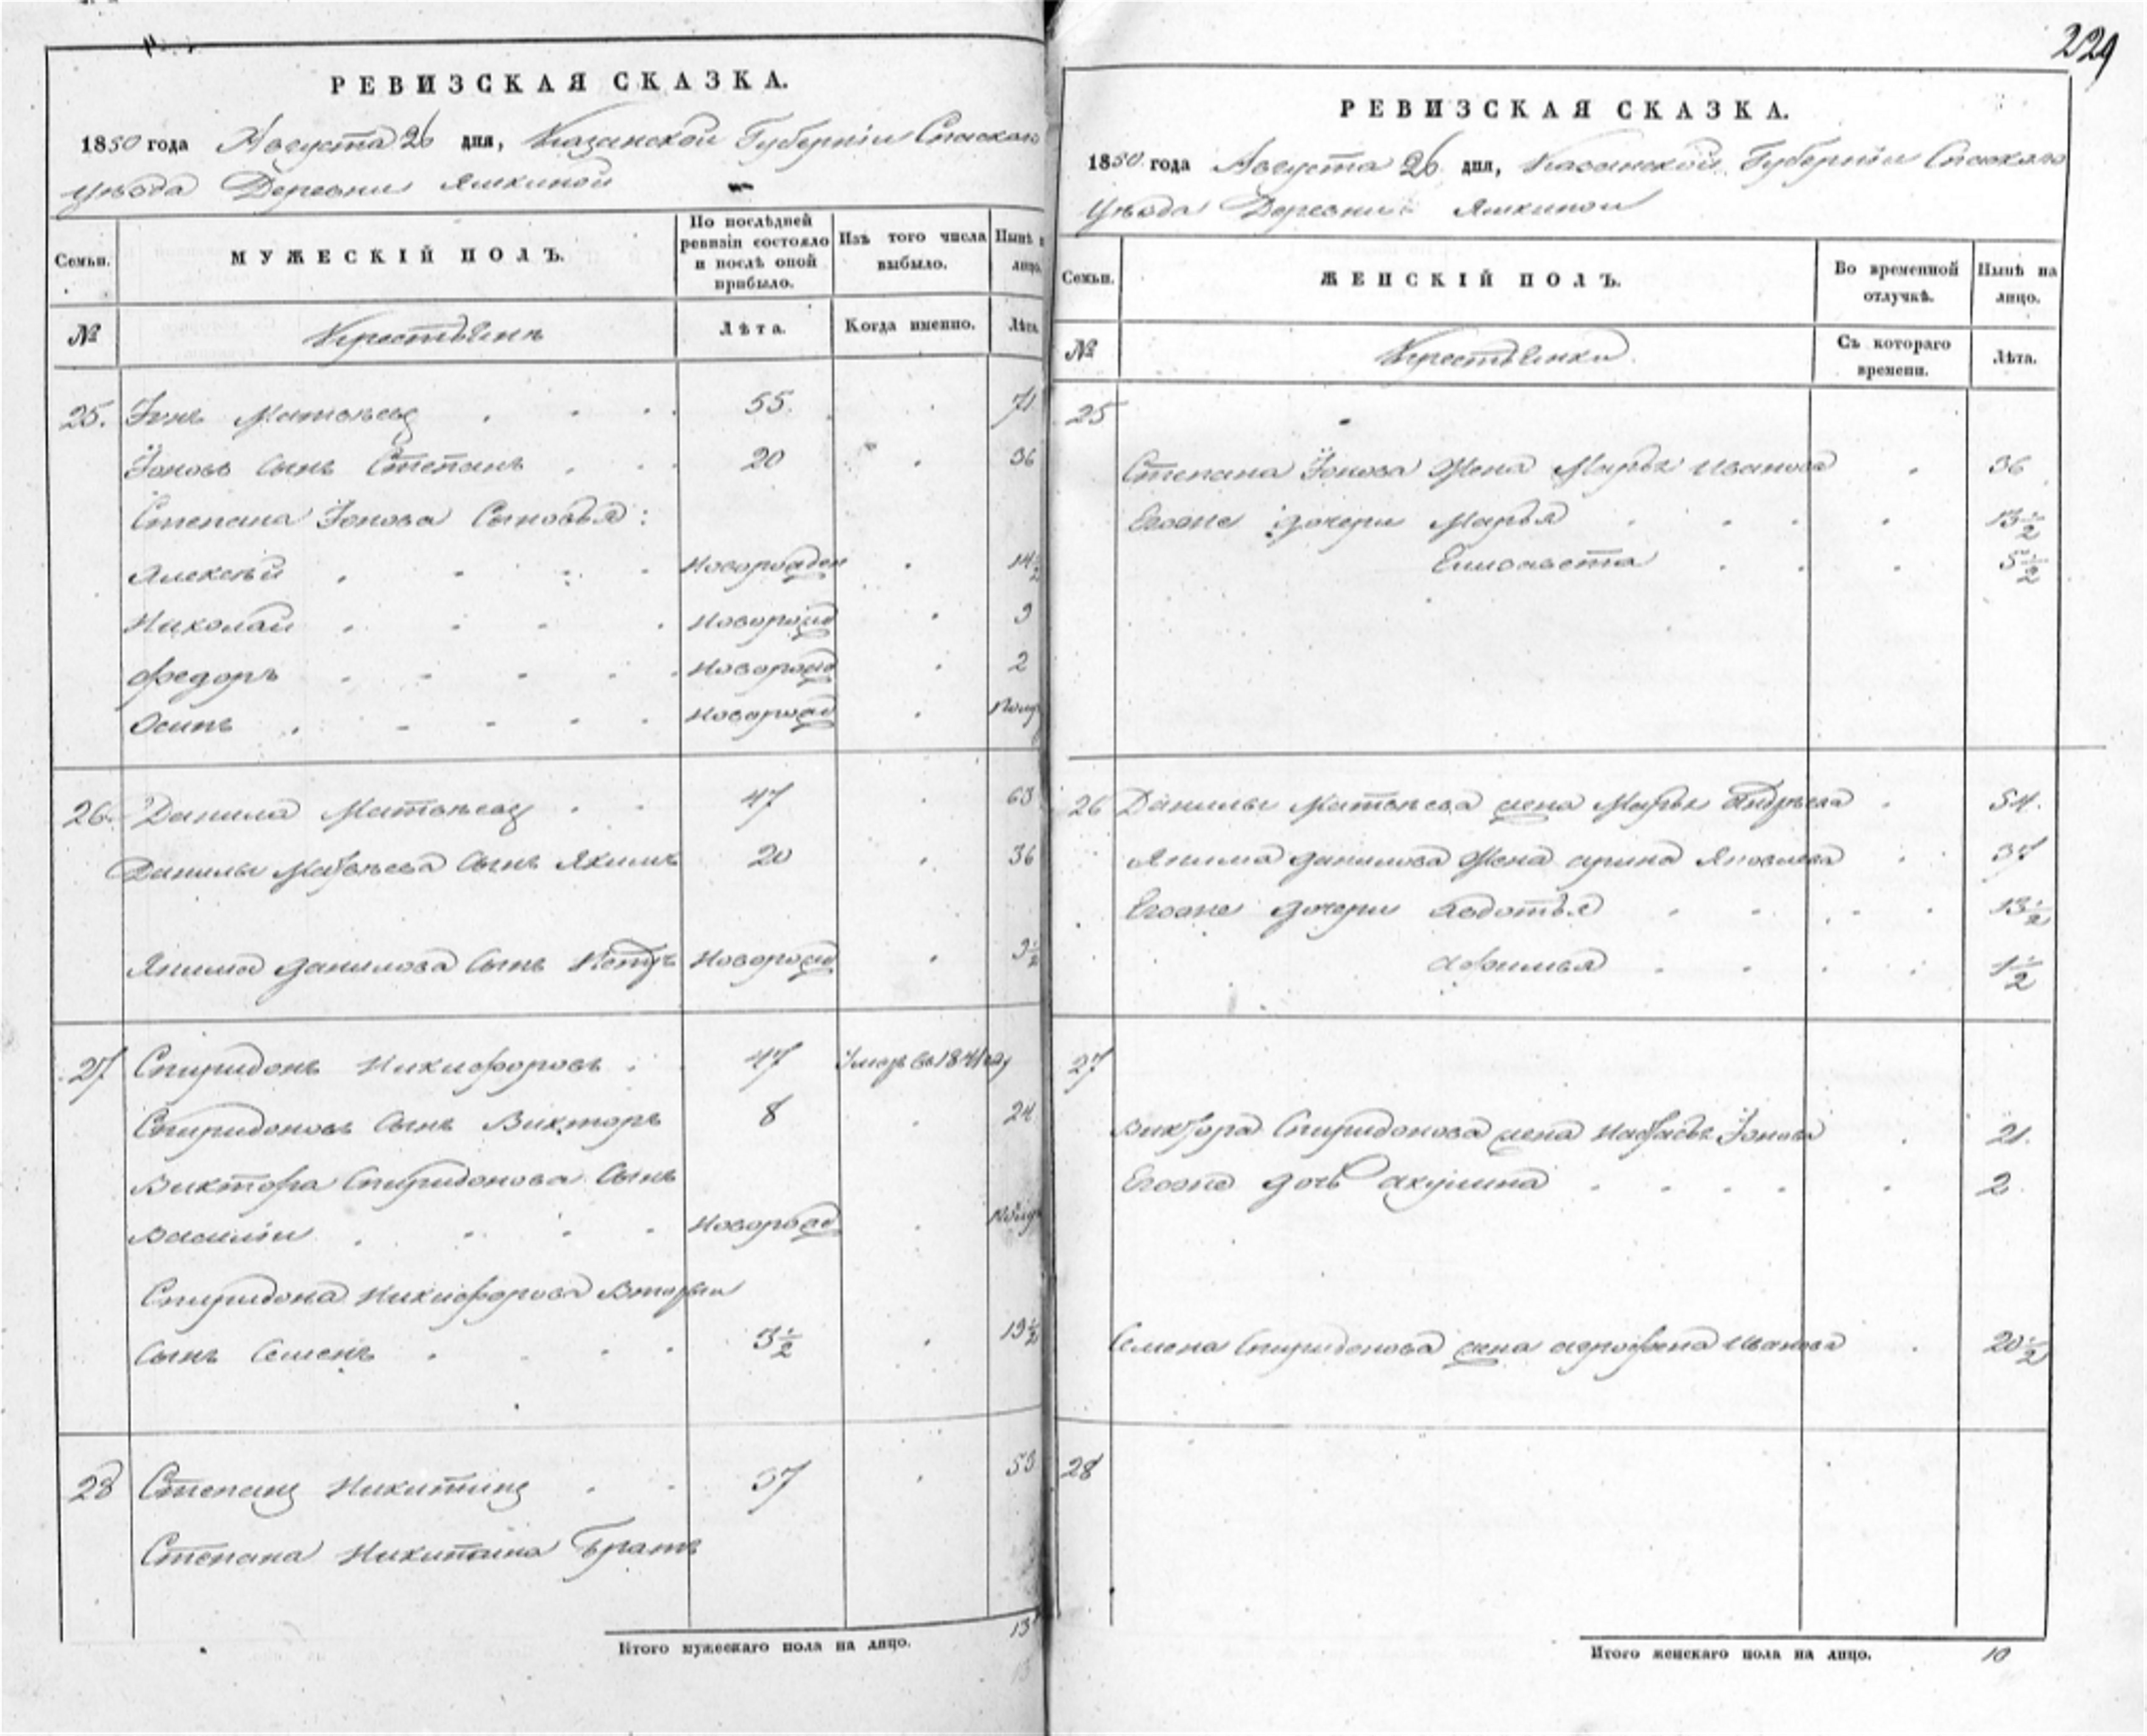 229
РЕВИЗСКАЯ СКАЗКА.
1850 года Августа 26 дня, Казанской Губерніи Спаскаго
уѣзда Деревни Ямкиной
Семьи. МУЖЕСКІЙ ПОЛЪ. По послѣдней ревизіи состояло и послѣ оной прибыло. Изъ того числа выбыло. Нынѣ на лицо.
№ Крестьянъ Лѣта. Когда именно. Лѣта.
25. Іонъ Матвѣевъ 55. 71
Іоновъ сынъ Степанъ 20 36
Степана Іонова Сыновья:
Алексѣй Новорожден 14½
Николай Новорожд 9
Федоръ Новорожд 2
Осипъ Новорожд
26. Данила Матвѣевъ 47 63
Данилы Матвѣева сынъ Якимъ 20 36
Якима Данилова сынъ Петръ Новорожд 9½
27 Спиридонъ Никифоровъ 47 Умеръ въ 1841 году
Спиридоновъ сынъ Викторъ 8 24
Виктора Спиридонова сынъ
Василіи Новорожд
Спиридона Никифорова Вторый
сынъ Семенъ 3½ 19½
28 Степанъ Никитинъ 37 53
Степана Никитина Братъ
Итого мужескаго пола на лицо. 13
РЕВИЗСКАЯ СКАЗКА.
1850 года Августа 26 дня, Казанской Губерніи Спаскаго
уѣзда Деревни Ямкиной
Семьи. ЖЕНСКІЙ ПОЛЪ. Во временной отлучкѣ. Нынѣ на лицо.
№ Крестьянки Съ котораго времени. Лѣта.
25
Степана Іонова жена Марья Иванова 36
Егоже дочери Марья 13½
Елисавета 5½
26 Данилы Матвѣева жена Марья Андрѣева 54.
Якима Данилова жена арина Яковлева 37
Егоже дочери Авдотья 13½
афимья 1½
27
Виктора Спиридонова жена Настасья Іонова 21.
Егоже дочь акулина 2
Семена Спиридонова жена аграфена Иванова 20½
28
Итого женскаго пола на лицо. 10